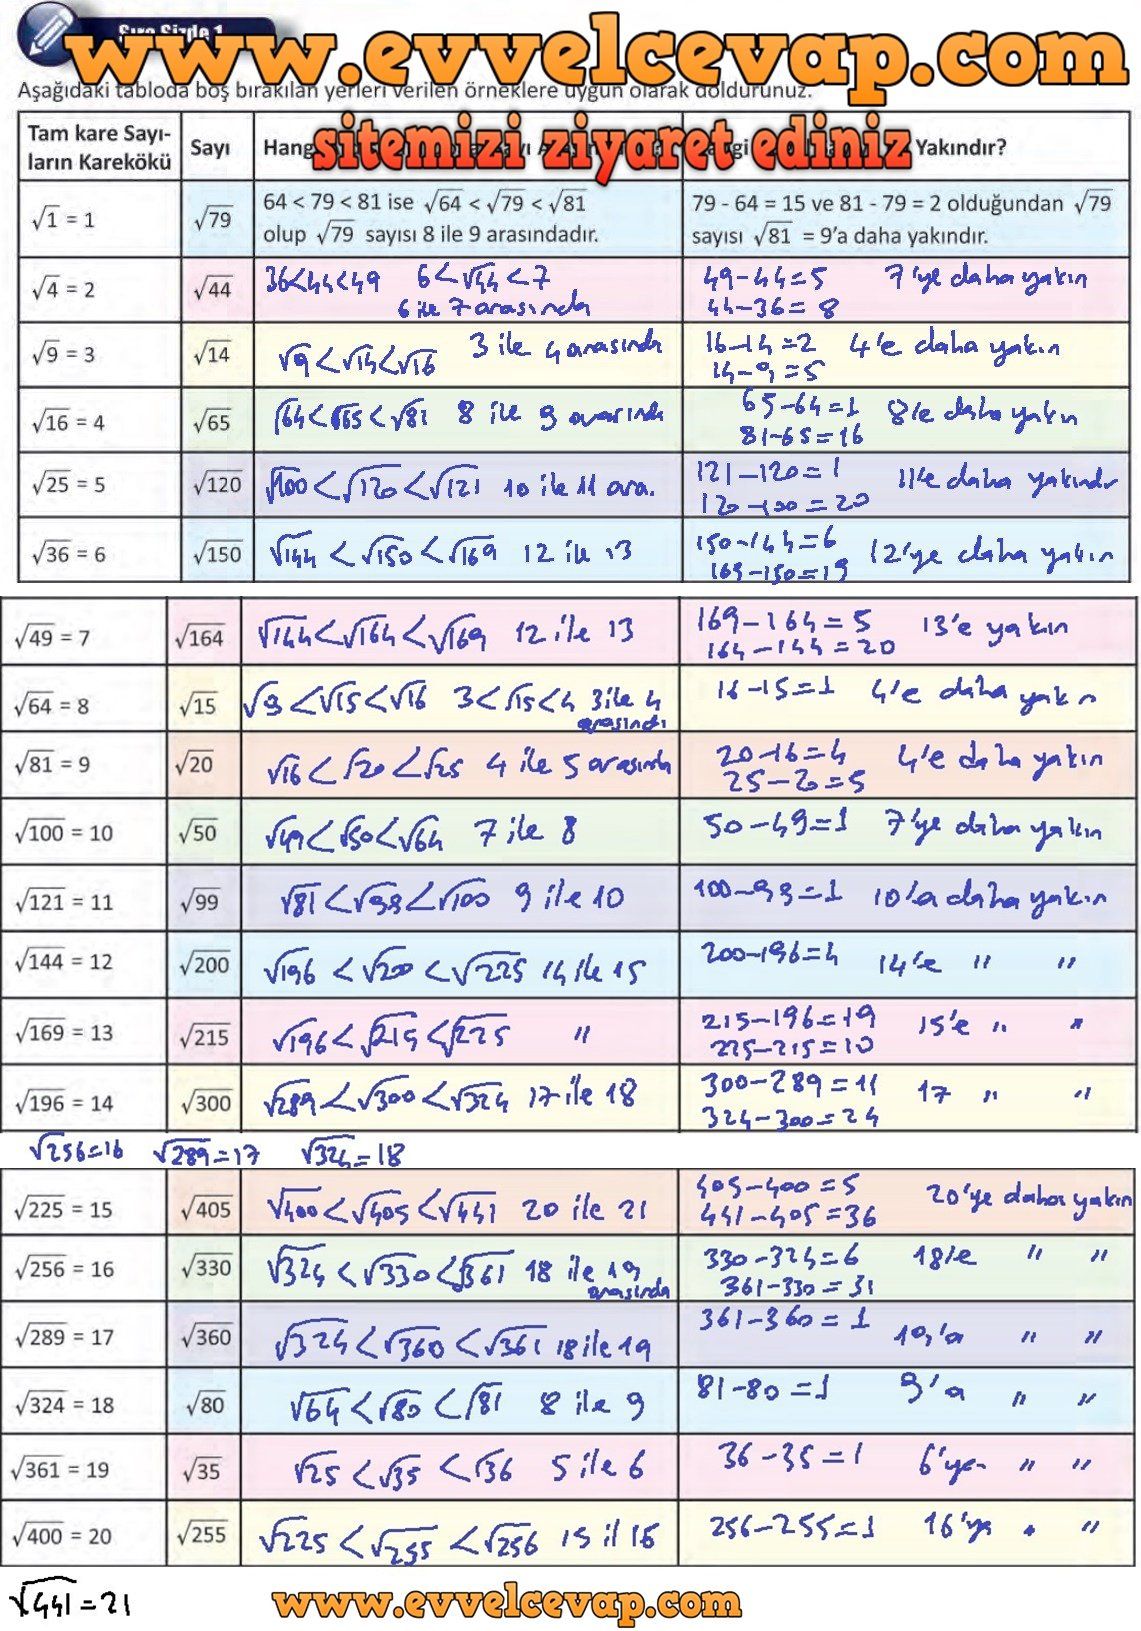 Sıra Sizde 1
www.evvelcevap.com
Aşağıdaki tabloda boş bırakılan yerleri verilen örneklere uygun olarak doldurunuz.
sitemizi ziyaret ediniz
Tam kare Sayı-
ların Karekökü
Sayı
Yakındır?
√1 = 1
√79
64 < 79 < 81 ise √64 < √79 < √81
olup √79 sayısı 8 ile 9 arasındadır.
79 - 64 = 15 ve 81 - 79 = 2 olduğundan √79
sayısı √81 = 9'a daha yakındır.
√4 = 2
√44
36<44<49 6<√44<7
6 ile 7 arasında
49-44=5 7'ye daha yakın
44-36=8
√9 = 3
√14
√9<√14<√16 3 ile 4 arasında
16-14=2 4'e daha yakın
14-9=5
√16 = 4
√65
√64<√65<√81 8 ile 9 arasında
65-64=1 8'e daha yakın
81-65=16
√25 = 5
√120
√100<√120<√121 10 ile 11 ara.
121-120=1 11'e daha yakındır
120-100=20
√36 = 6
√150
√144<√150<√169 12 ile 13
150-144=6 12'ye daha yakın
169-150=19
√49 = 7
√164
√144<√164<√169 12 ile 13
169-164=5 13'e yakın
164-144=20
√64 = 8
√15
√9<√15<√16 3<√15<4 3 ile 4
arasında
16-15=1 4'e daha yakın
√81 = 9
√20
√16<√20<√25 4 ile 5 arasında
20-16=4 4'e daha yakın
25-20=5
√100 = 10
√50
√49<√50<√64 7 ile 8
50-49=1 7'ye daha yakın
√121 = 11
√99
√81<√99<√100 9 ile 10
100-99=1 10'a daha yakın
√144 = 12
√200
√196<√200<√225 14 ile 15
200-196=4 14'e " "
√169 = 13
√215
√196<√215<√225 "
215-196=19 15'e " "
225-215=10
√196 = 14
√300
√289<√300<√324 17 ile 18
300-289=11 17 " "
324-300=24
√256=16 √289=17 √324=18
√225 = 15
√405
√400<√405<√441 20 ile 21
405-400=5 20'ye daha yakın
441-405=36
√256 = 16
√330
√324<√330<√361 18 ile 19
arasında
330-324=6 18'e " "
361-330=31
√289 = 17
√360
√324<√360<√361 18 ile 19
361-360=1 19'a " "
√324 = 18
√80
√64<√80<√81 8 ile 9
81-80=1 9'a " "
√361 = 19
√35
√25<√35<√36 5 ile 6
36-35=1 6'ya " "
√400 = 20
√255
√225<√255<√256 15 il 16
256-255=1 16'ya " "
√441=21
www.evvelcevap.com